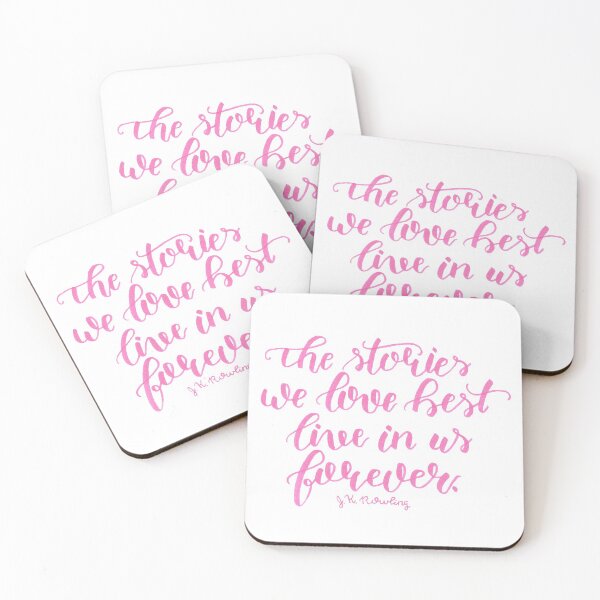 The stories
we love best
in us
The stories
we love best
live in us
forever.
The stories
we love best
live in us
forever
J.K. Rowling
The stories
we love best
live in us
forever.
J.K. Rowling